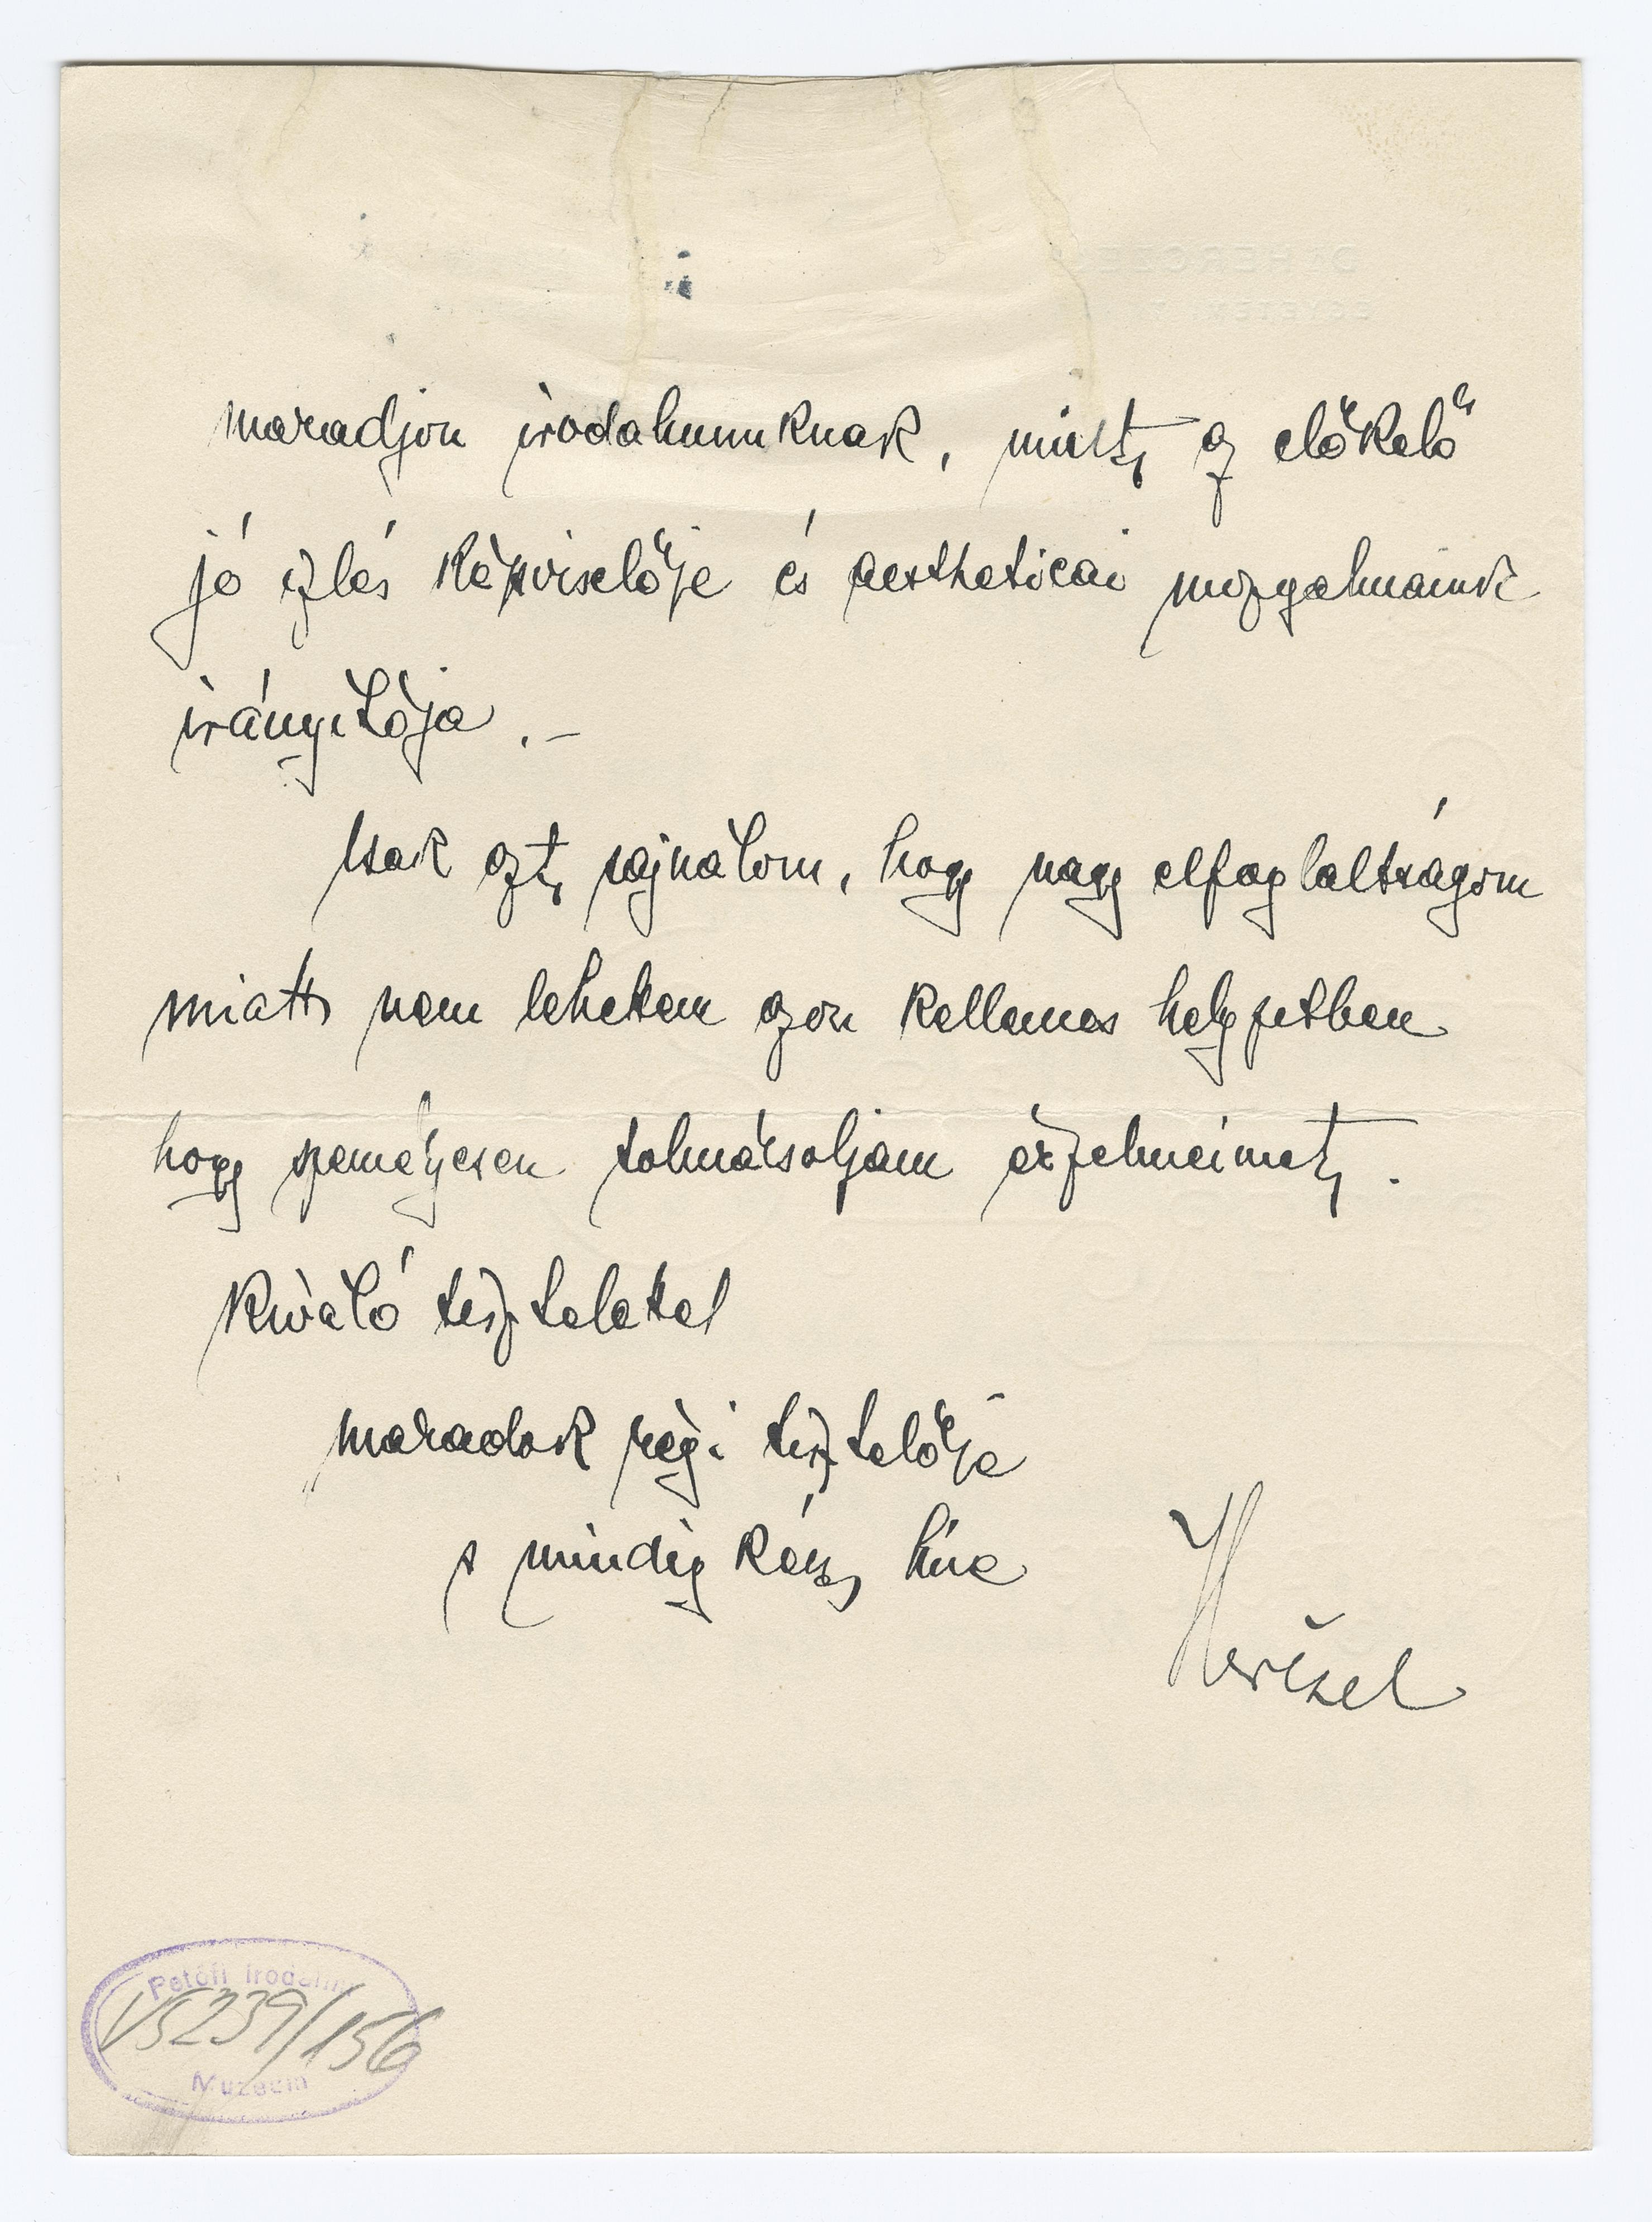 maradjon irodalmunknak, mint az előkelő
jó izlés képviselője és aestheticai mozgalmaink
irányitója.-
Csak azt sajnálom, hogy nagy elfoglaltságom
miatt nem lehetem azon kellemes helyzetben
hogy személyesen tolmácsoljam érzelmeimet.
Kiváló tisztelettel
maradok régi tisztelője
s mindig kész híve
Herczel
Petőfi Irodalmi
V5239/156
Múzeum